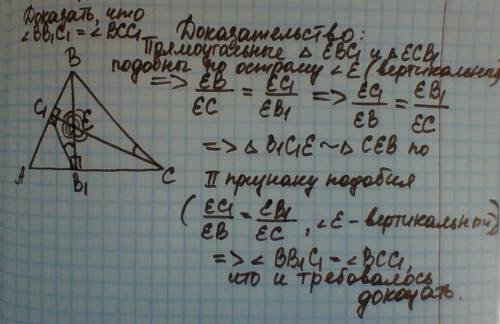 Доказать, что
∠BB₁C₁ = ∠BCC₁
Доказательство:
Прямоугольные △EBC₁ и △ECB₁
подобны по острому ∠E (вертикальный)
=> EB/EC = EC₁/EB₁ => EC₁/EB = EB₁/EC
=> △B₁C₁E ~ △CEB по
II признаку подобия
(EC₁/EB = EB₁/EC, ∠E - вертикальный)
=> ∠BB₁C₁ = ∠BCC₁,
что и требовалось
доказать.
B
C₁
E
A
B₁
C